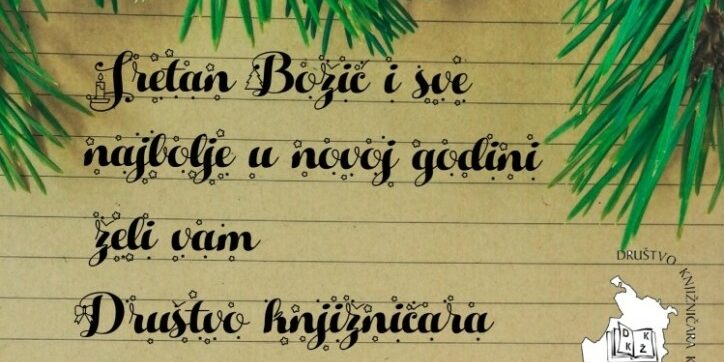 Sretan Božić i sve
najbolje u novoj godini
želi vam
Društvo knjižničara
DRUŠTVO KNJIŽNIČARA K
D K
K Ž